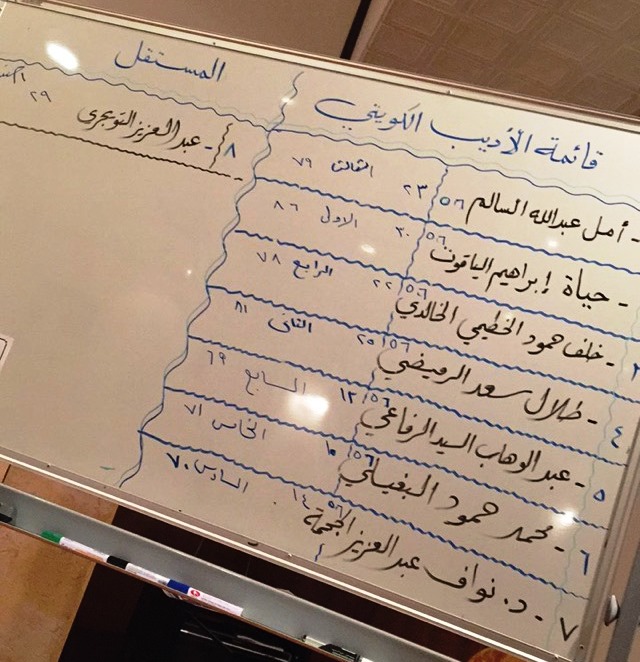 قائمة الأديب الكويتي
المستقل
- أمل عبدالله السالم ٥٦ ٢٣ الثالث ٧٩
- حياة إبراهيم الياقوت ٥٦ ٣٠ الأول ٨٦
- خلف حمود الخطيمي الخالدي ٥٦ ٢٢ الرابع ٧٨
٤ - طلال سعد الرميضي ٥٦ ٢٥ الثاني ٨١
٥ - عبد الوهاب السيد الرفاعي ٥٦ ١٣ السابع ٦٩
٦ - محمد حمود البغيلي ٥٦ الخامس ٧١
٧ - د. نواف عبدالعزيز الجحمة ٥٦ ١٤ السادس ٧٠
٨ - عبدالعزيز التويجري ٢٩